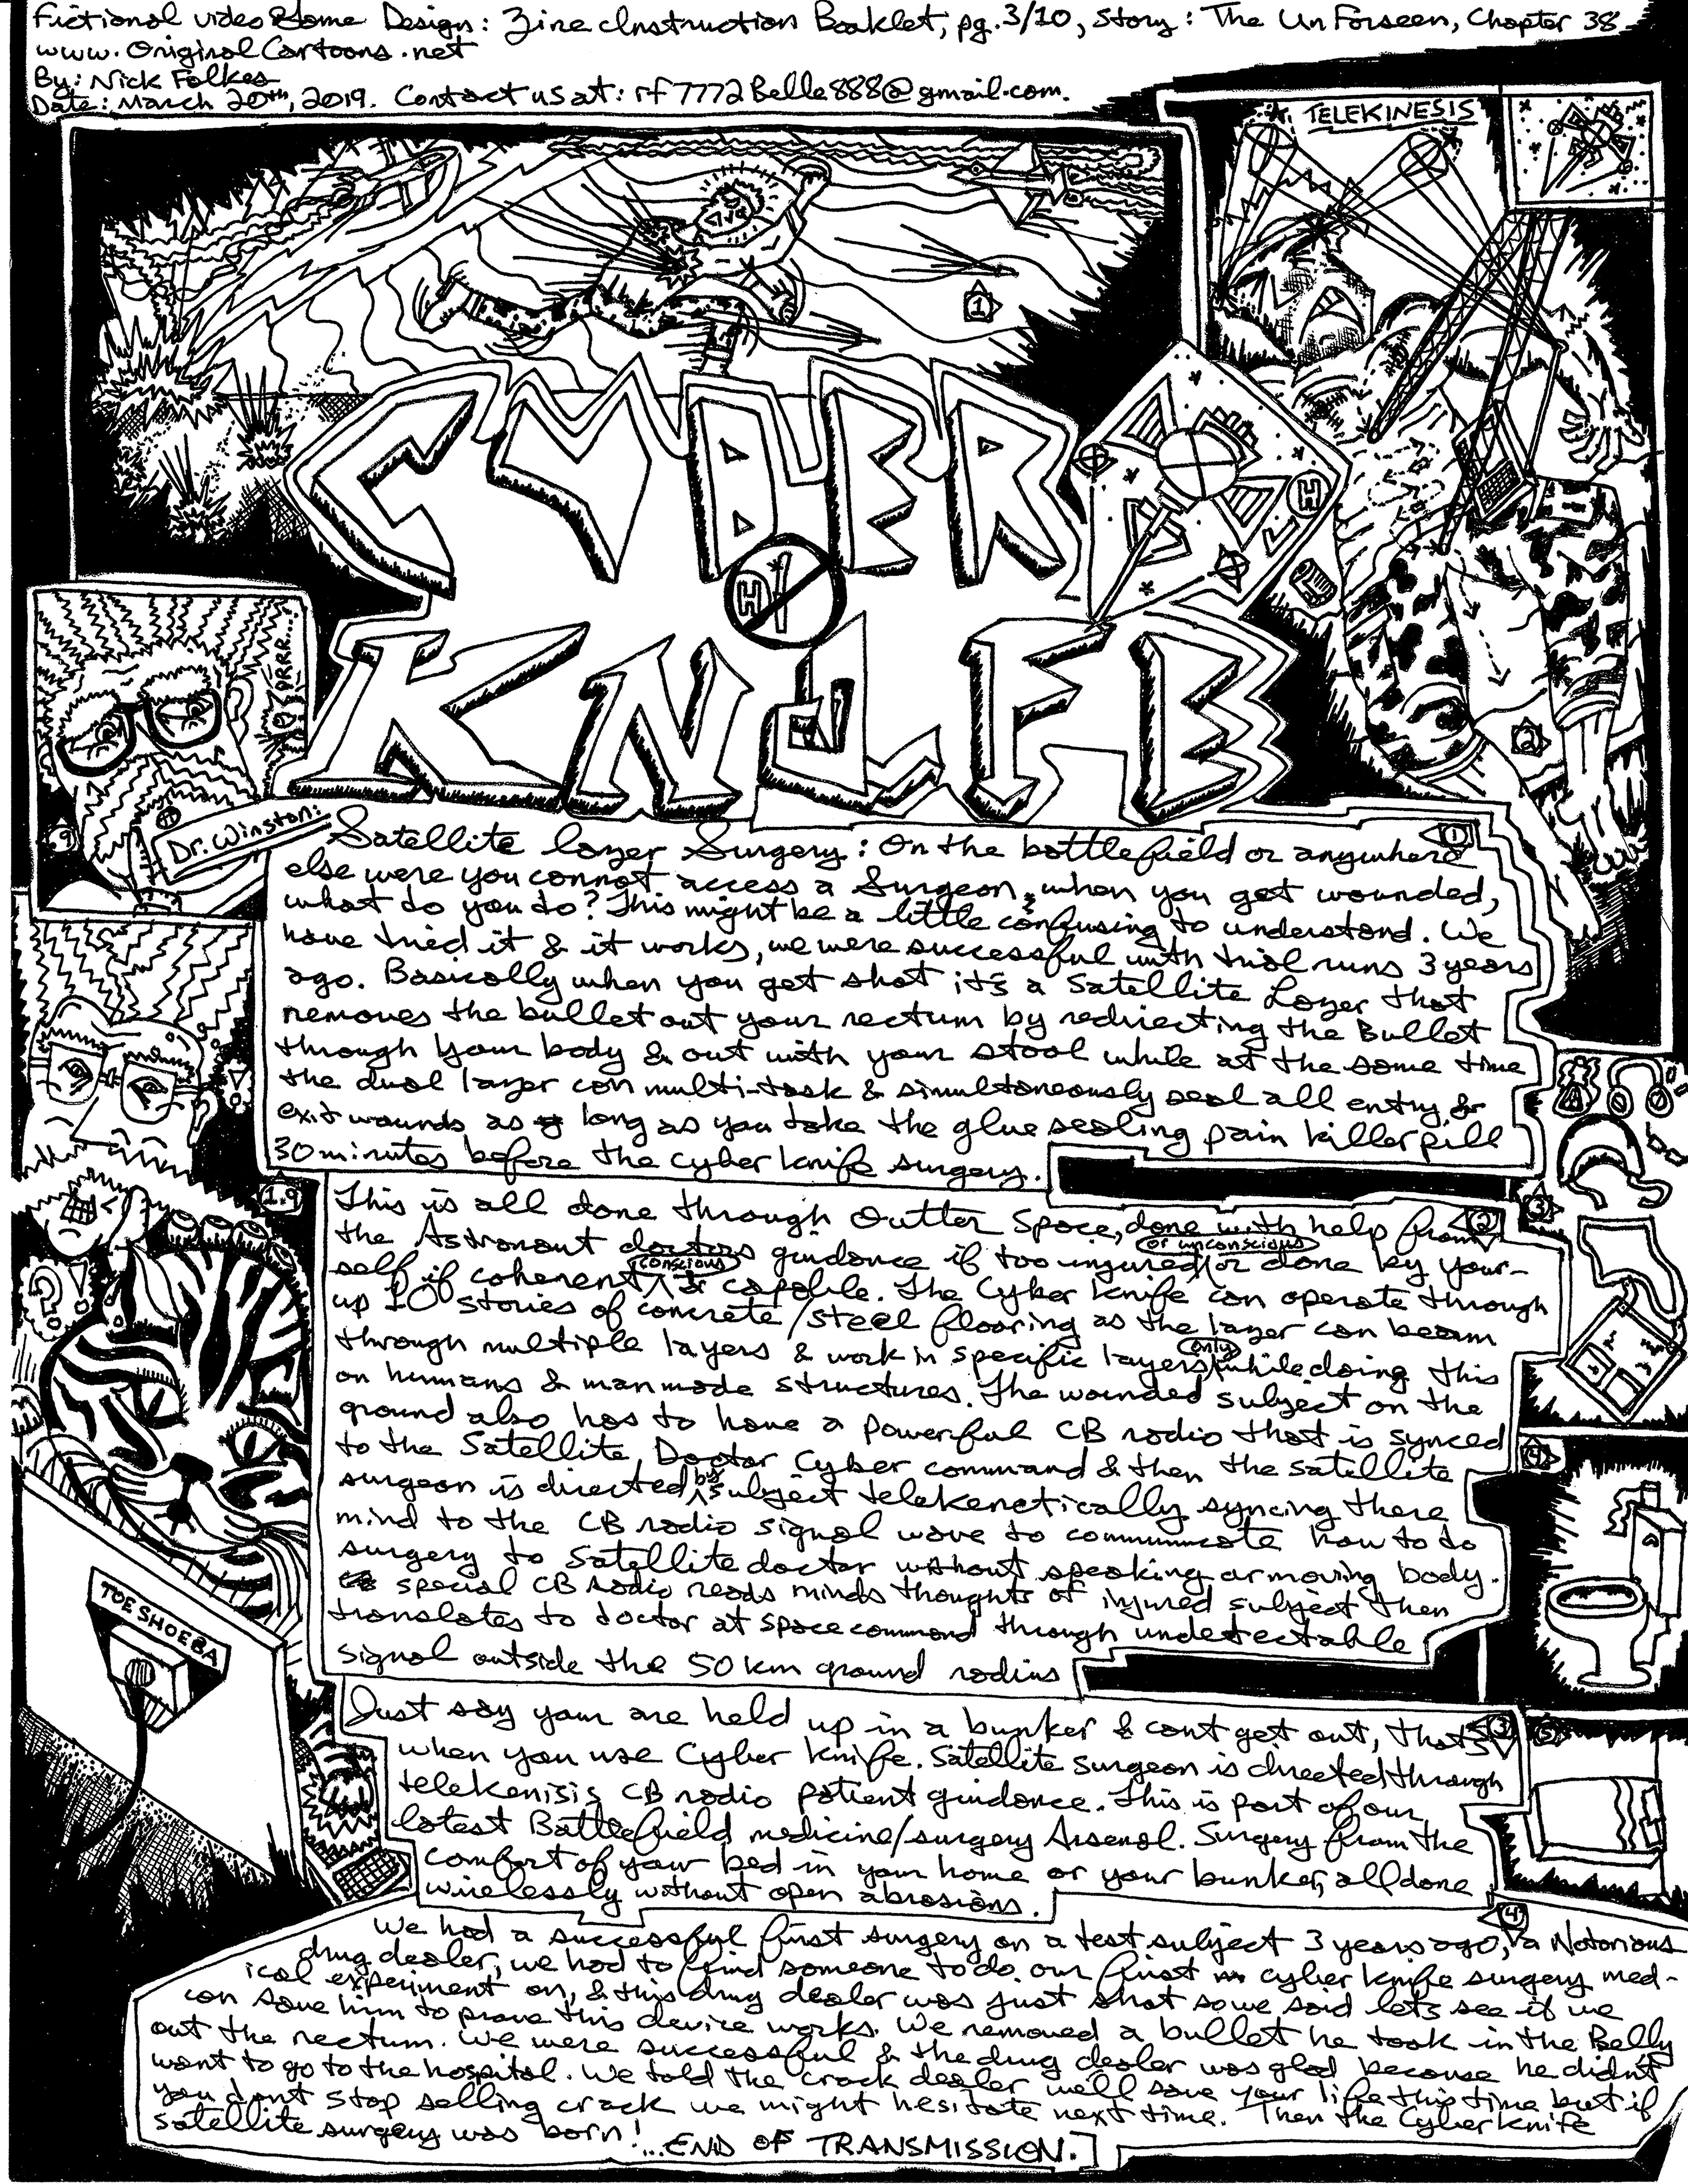 Fictional video Game Design: Zine Instruction Booklet, pg.3/10, Story: The UnForseen, Chapter 38
www.OriginalCartoons.net
By: Nick Folkes
Date: March 20th, 2019. Contact us at: rf7772Belle888@gmail.com.
TELEKINESIS
1
CYBER
H
H
KNIFE
2
GRRR....
.9
Dr. Winston:
1
Satellite lazer Surgery: On the battlefield or anywhere
else were you cannot access a Surgeon, when you get wounded,
what do you do? This might be a little confusing to understand. We
have tried it & it works, we were successful with trial runs 3 years
ago. Basically when you get shot it's a Satellite Lazer that
removes the bullet out your rectum by redirecting the Bullet
through your body & out with your stool while at the same time
the dual lazer can multi-task & simultaneously seal all entry &
exit wounds as long as you take the glue sealing pain killer pill
30 minutes before the cyber knife surgery.
1.9
2
3
This is all done through Outter Space, done with help from
the Astronaut doctors guidance if too injured or unconscious or done by your-
self if coherent conscious & capable. The Cyber Knife can operate through
up 10 stories of concrete/steel flooring as the lazer can beam
through multiple layers & work in specific layers only while doing this
on humans & manmade structures. The wounded subject on the
ground also has to have a powerful CB radio that is synced
to the Satellite Doctor Cyber command & then the satellite
surgeon is directed by subject telekenetically syncing there
mind to the CB radio signal wave to communicate how to do
surgery to Satellite doctor without speaking or moving body.
special CB radio reads minds thoughts of injured subject then
translates to doctor at space command through undetectable
signal outside the 50 km ground radius
4
TOE SHOEBA
3
5
Just say your are held up in a bunker & cant get out, thats
when you use Cyber knife. Satellite surgeon is directed through
telekenisis CB radio patient guidance. This is part of our
latest Battlefield medicine/surgery Arsenal. Surgery from the
comfort of your bed in your home or your bunker, all done
wirelessly without open abrasions.
4
We had a successful first surgery on a test subject 3 years ago, a Notorious
drug dealer, we had to find someone to do our first cyber knife surgery med-
ical experiment on, & this drug dealer was just shot so we said lets see if we
can save him to prove this device works. We removed a bullet he took in the Belly
out the rectum. We were successful & the drug dealer was glad because he didn't
want to go to the hospital. We told the crack dealer we'll save your life this time but if
you dont stop selling crack we might hesitate next time. Then the Cyber knife
satellite surgery was born! ...END OF TRANSMISSION.]